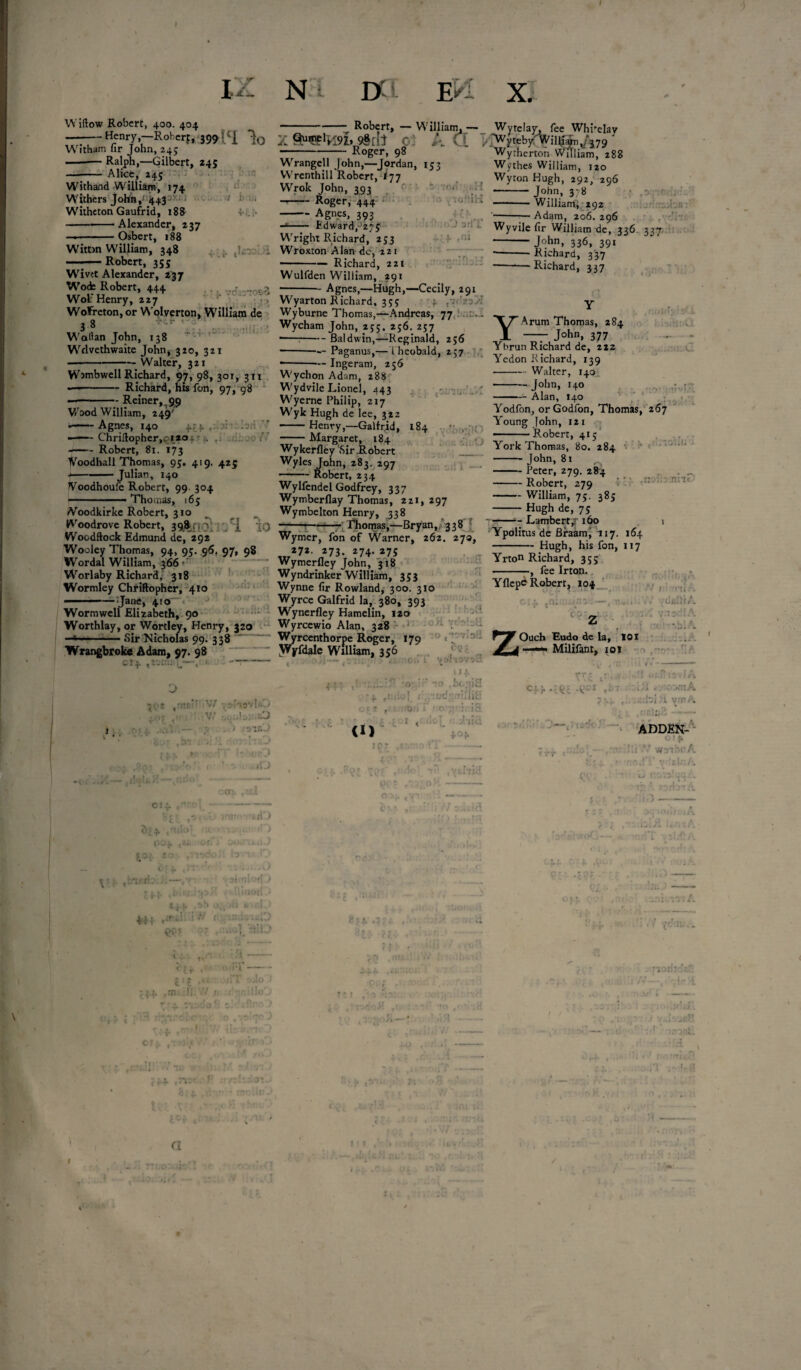 I N D E X.
Wiftow Robert, 400. 404
——— Henry,—Robert, 399
Witham fir John, 245
——— Ralph,—Gilbert, 245
——— Alice, 245
Withand William, 174
Withers John, 443
Witheton Gaufrid, 188
——— Alexander, 237
——— Osbert, 188
Witton William, 348
——— Robert, 355
Wivet Alexander, 237
Wode Robert, 444
Wolf Henry, 227
Wolreton, or Wolverton, William de
38
Wollan John, 138
Wolvethwaite John, 320, 321
——— Walter, 321
Wombwell Richard, 97, 98, 301, 311
——— Richard, his fon, 97, 98
——— Reiner, 99
Wood William, 249
——— Agnes, 140
——— Chriftopher, 120
——— Robert, 81. 173
Woodhall Thomas, 95. 419. 425
——— Julian, 140
Woodhoufe Robert, 99. 304
——— Thomas, 165
Woodkirke Robert, 310
Woodrove Robert, 398
Woodftock Edmund de, 292
Wooley Thomas, 94, 95. 96, 97, 98
Wordal William, 366
Worlaby Richard, 318
Wormley Chriftopher, 410
——— Jane, 410
Wormwell Elizabeth, 90
Worthlay, or Wortley, Henry, 320
——— Sir Nicholas 99. 338
Wrangbroke Adam, 97. 98
——— Robert, — William, —
91, 98
——— Roger, 98
Wrangell John,—Jordan, 153
Wrenthill Robert, 177
Wrok John, 393
——— Roger, 444
——— Agnes, 393
——— Edward, 275
Wright Richard, 253
Wroxton Alan de, 221
——— Richard, 221
Wulfden William, 291
——— Agnes,—Hugh,—Cecily, 291
Wyarton Richard, 355
Wyburne Thomas,—Andreas, 77
Wycham John, 255. 256. 257
——— Baldwin,—Reginald, 256
——— Paganus,—Theobald, 257
——— Ingeram, 256
Wychon Adam, 288
Wydvile Lionel, 443
Wyerne Philip, 217
Wyk Hugh de lee, 322
——— Henry,—Galfrid, 184
——— Margaret, 184
Wykerfley Sir Robert
Wyles John, 283. 297
——— Robert, 234
Wylfendel Godfrey, 337
Wymberflay Thomas, 221, 297
Wymbelton Henry, 338
——— Thomas,—Bryan, 338
Wymer, fon of Warner, 262. 272,
272. 273. 274. 275
Wymerfley John, 318
Wyndrinker William, 353
Wynne fir Rowland, 300. 310
Wyrce Galfrid la, 380, 393
Wynerfley Hamelin, 120
Wyrcewio Alan, 328
Wyrcenthorpe Roger, 179
Wyfdale William, 356
Wytelay, fee Whitelay
Wyteby William, 379
Wytherton William, 288
Wythes William, 120
Wyton Hugh, 292, 296
——— John, 378
——— William, 292
——— Adam, 206. 296
Wyvile fir William de, 336 337
——— John, 336, 391
——— Richard, 337
——— Richard, 337
Y
YArum Thomas, 284
——— John, 377
Ybrun Richard de, 222
Yedon Richard, 139
——— Walter, 140
——— John, 140
——— Alan, 140
Yodfon, or Godfon, Thomas, 267
Young John, 121
——— Robert, 415
York Thomas, 80. 284
——— John, 81
——— Peter, 279. 284
——— Robert, 279
——— William, 75. 385
——— Hugh de, 75
——— Lambert, 160
Ypolitus de Braam, 117. 164
——— Hugh, his fon, 117
Yrton Richard, 355
———, fee Irton.
Yflepe Robert, 104
Z
ZOuch Eudo de la, 101
——— Milifant, 101
(I)
ADDEN-